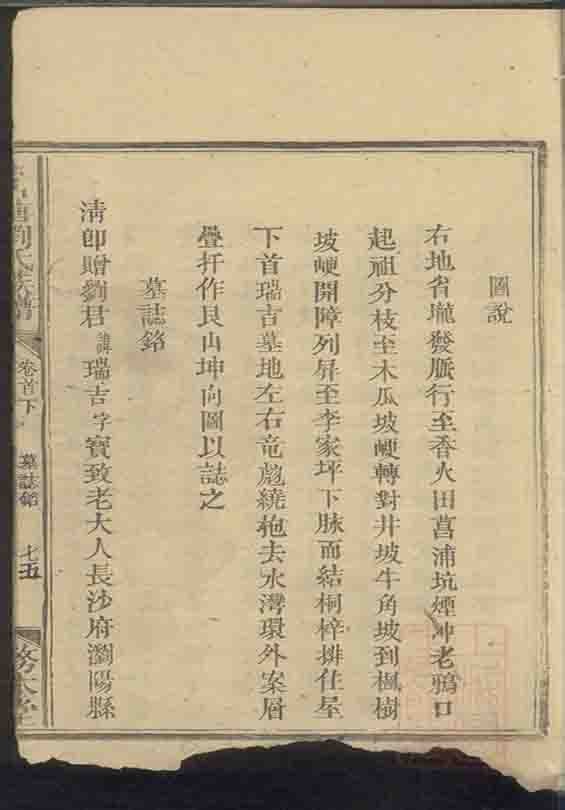 圖說
右地省壠發脈行至香火田菖浦坑煙冲老鴉口
起祖分枝至木瓜坡峺轉對井坡牛角坡到楓樹
坡峺開障列屏至李家坪下脉而結桐梓排仕屋
下首瑞吉墓地左右竜蟠繞抱去水灣環外案層
疊扦作艮山坤向圖以誌之
墓誌銘
淸卽贈劉君諱瑞吉字寶致老大人長沙府瀏陽縣
劉氏族譜
卷首下
墓誌銘
七五
務本堂